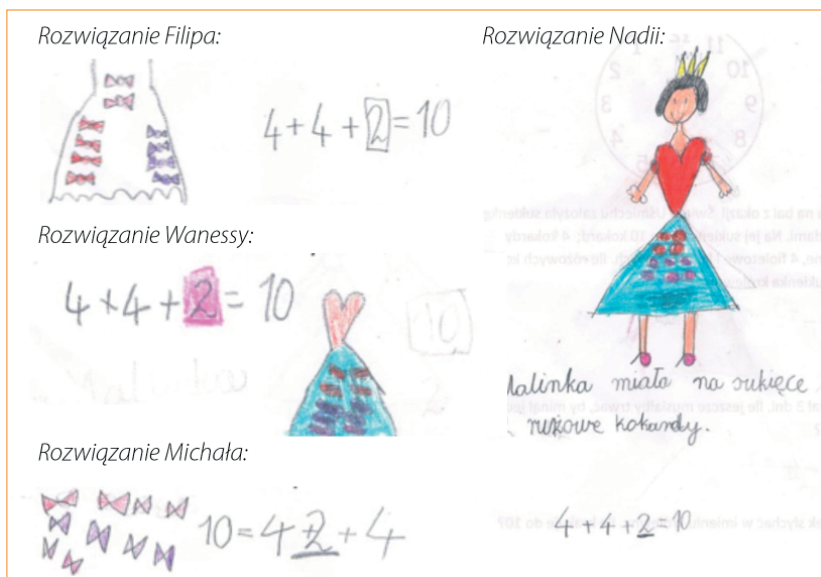 Rozwiązanie Filipa:
4+4+2=10
Rozwiązanie Wanessy:
4+4+2=10
10
2
Malinka
Rozwiązanie Michała:
10=4 2+4
Rozwiązanie Nadii:
Malinka miała na sukięce
rużowe kokardy.
4+4+2=10